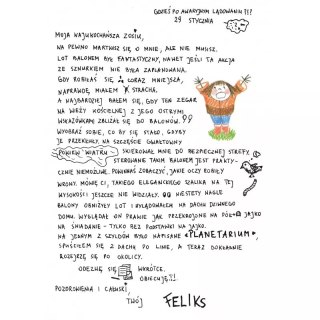 GDZIEŚ PO AWARYJNYM LĄDOWANIU???
29 STYCZNIA
MOJA NAJUKOCHAŃSZA ZOSIU,
NA PEWNO MARTWISZ SIĘ O MNIE, ALE NIE MUSISZ.
LOT BALONEM BYŁ FANTASTYCZNY, NAWET JEŚLI TA AKCJA
ZE SZNURKIEM NIE BYŁA ZAPLANOWANA.
GDY ROBIŁAŚ SIĘ CORAZ MNIEJSZA,
NAPRAWDĘ MIAŁEM STRACHA.
A NAJBARDZIEJ BAŁEM SIĘ, GDY TEN ZEGAR
NA WIEŻY KOŚCIELNEJ Z JEGO OSTRYMI
WSKAZÓWKAMI ZBLIŻAŁ SIĘ DO BALONÓW.
WYOBRAŹ SOBIE, CO BY SIĘ STAŁO, GDYBY
JE PRZEKŁUŁY. NA SZCZĘŚCIE GWAŁTOWNY
POWIEW WIATRU SKIEROWAŁ MNIE DO BEZPIECZNEJ STREFY.
STEROWANIE TAKIM BALONEM JEST PRAKTY-
CZNIE NIEMOŻLIWE. POWINNAŚ ZOBACZYĆ, JAKIE OCZY ROBIŁY
WRONY. MÓWIĘ CI, TAKIEGO ELEGANCKIEGO SZALIKA NA TEJ
WYSOKOŚCI JESZCZE NIE WIDZIAŁY. NIESTETY NAGLE
BALONY OBNIŻYŁY LOT I WYLĄDOWAŁEM NA DACHU DZIWNEGO
DOMU. WYGLĄDAŁ ON PRAWIE JAK PRZEKROJONE NA PÓŁ JAJKO
NA ŚNIADANIE - TYLKO BEZ PODSTAWKI NA JAJKO.
NA JEDNYM Z SZYLDÓW BYŁO NAPISANE «PLANETARIUM».
SPUŚCIŁEM SIĘ Z DACHU PO LINIE, A TERAZ DOKŁADNIE
ROZEJRZĘ SIĘ PO OKOLICY.
ODEZWĘ SIĘ WKRÓTCE.
OBIECUJĘ!!!
POZDROWIENIA I CAŁUSKI,
TWÓJ FELIKS